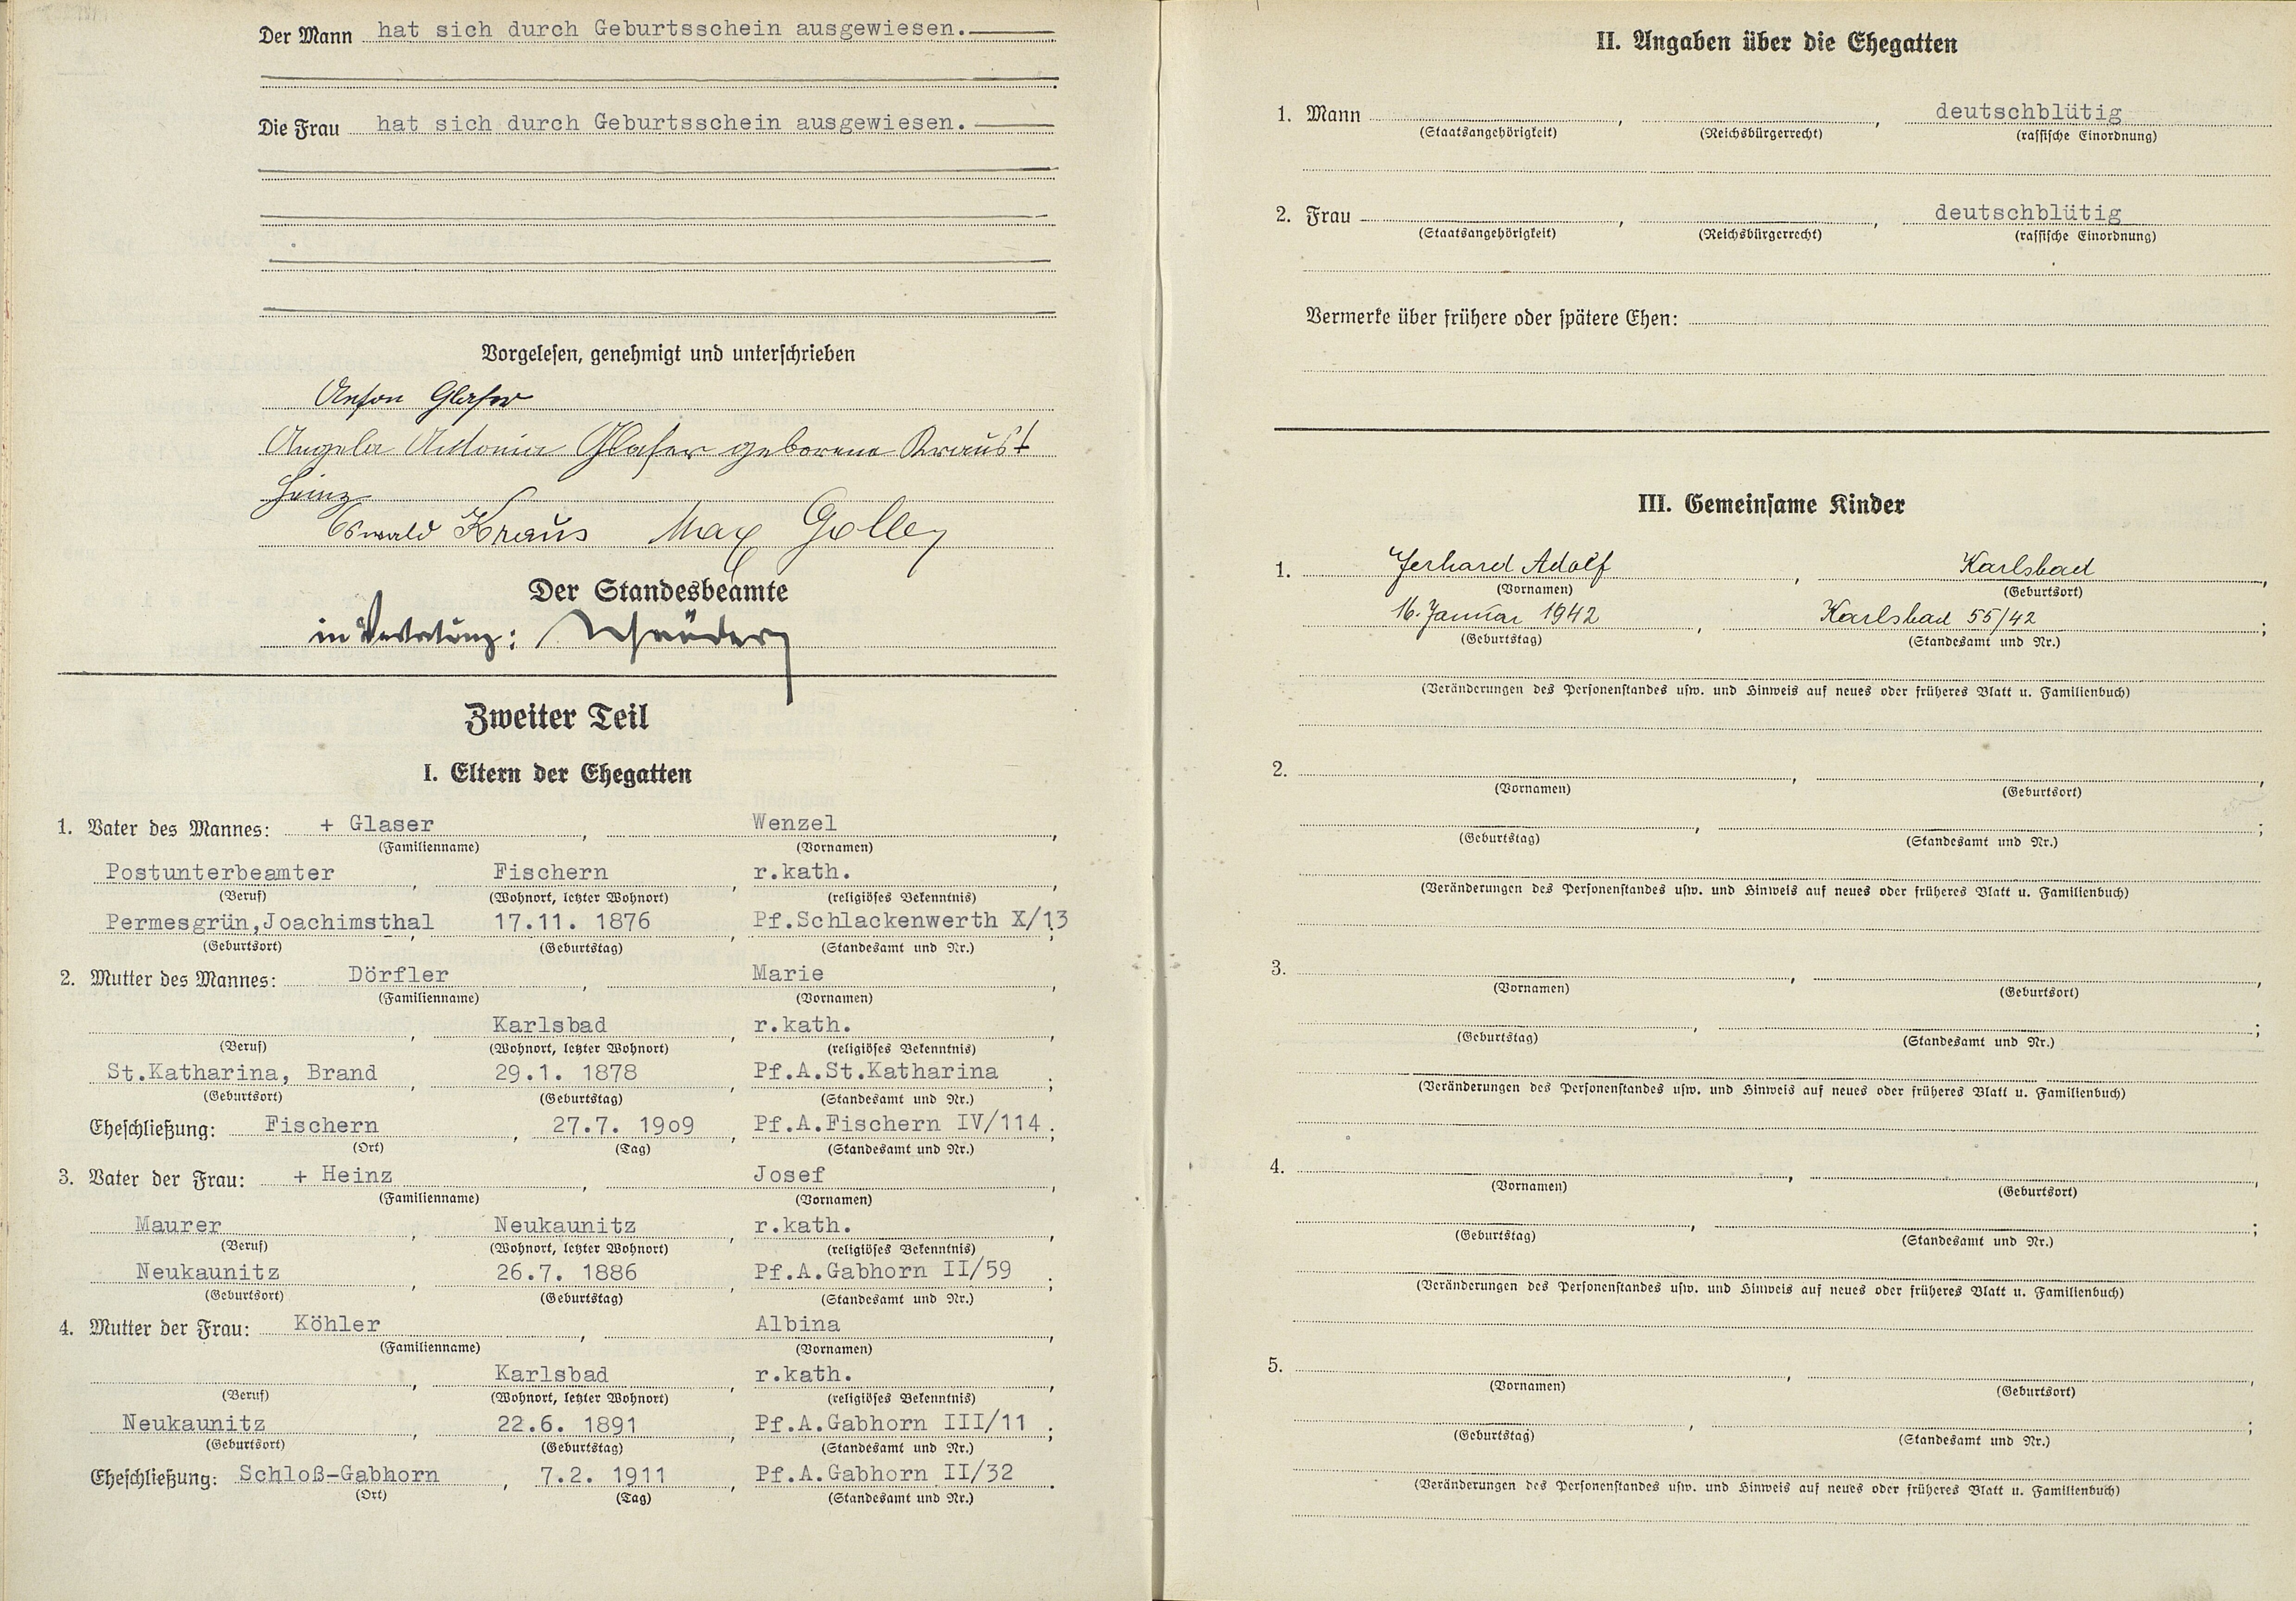 Der Mann hat sich durch Geburtsschein ausgewiesen.
Die Frau hat sich durch Geburtsschein ausgewiesen.
Vorgelesen, genehmigt und unterschrieben
Anton Glaser
Angela Antonia Glaser geborene
Heinz
Oswald Kraus Max
Der Standesbeamte
in Vertretung:
Zweiter Teil
I. Eltern der Ehegatten
1. Vater des Mannes: + Glaser, Wenzel,
(Familienname) (Vornamen)
Postunterbeamter, Fischern, r.kath.,
(Beruf) (Wohnort, letzter Wohnort) (religiöses Bekenntnis)
Permesgrün,Joachimsthal, 17.11. 1876, Pf.Schlackenwerth X/13;
(Geburtsort) (Geburtstag) (Standesamt und Nr.)
2. Mutter des Mannes: Dörfler, Marie,
(Familienname) (Vornamen)
, Karlsbad, r.kath.,
(Beruf) (Wohnort, letzter Wohnort) (religiöses Bekenntnis)
St.Katharina, Brand, 29.1. 1878, Pf.A.St.Katharina;
(Geburtsort) (Geburtstag) (Standesamt und Nr.)
Eheschließung: Fischern, 27.7. 19o9, Pf.A.Fischern IV/114;
(Ort) (Tag) (Standesamt und Nr.)
3. Vater der Frau: + Heinz, Josef,
(Familienname) (Vornamen)
Maurer, Neukaunitz, r.kath.,
(Beruf) (Wohnort, letzter Wohnort) (religiöses Bekenntnis)
Neukaunitz, 26.7. 1886, Pf.A.Gabhorn II/59;
(Geburtsort) (Geburtstag) (Standesamt und Nr.)
4. Mutter der Frau: Köhler, Albina,
(Familienname) (Vornamen)
, Karlsbad, r.kath.,
(Beruf) (Wohnort, letzter Wohnort) (religiöses Bekenntnis)
Neukaunitz, 22.6. 1891, Pf.A.Gabhorn III/11;
(Geburtsort) (Geburtstag) (Standesamt und Nr.)
Eheschließung: Schloß-Gabhorn, 7.2. 1911, Pf.A.Gabhorn II/32.
(Ort) (Tag) (Standesamt und Nr.)
II. Angaben über die Ehegatten
1. Mann , , deutschblütig
(Staatsangehörigkeit) (Reichsbürgerrecht) (rassische Einordnung)
2. Frau , , deutschblütig
(Staatsangehörigkeit) (Reichsbürgerrecht) (rassische Einordnung)
Vermerke über frühere oder spätere Ehen:
III. Gemeinsame Kinder
1. Gerhard Adolf, Karlsbad,
(Vornamen) (Geburtsort)
16. Januar 1942, Karlsbad 55/42;
(Geburtstag) (Standesamt und Nr.)
(Veränderungen des Personenstandes usw. und Hinweis auf neues oder früheres Blatt u. Familienbuch)
2. , ,
(Vornamen) (Geburtsort)
, ;
(Geburtstag) (Standesamt und Nr.)
(Veränderungen des Personenstandes usw. und Hinweis auf neues oder früheres Blatt u. Familienbuch)
3. , ,
(Vornamen) (Geburtsort)
, ;
(Geburtstag) (Standesamt und Nr.)
(Veränderungen des Personenstandes usw. und Hinweis auf neues oder früheres Blatt u. Familienbuch)
4. , ,
(Vornamen) (Geburtsort)
, ;
(Geburtstag) (Standesamt und Nr.)
(Veränderungen des Personenstandes usw. und Hinweis auf neues oder früheres Blatt u. Familienbuch)
5. , ,
(Vornamen) (Geburtsort)
, ;
(Geburtstag) (Standesamt und Nr.)
(Veränderungen des Personenstandes usw. und Hinweis auf neues oder früheres Blatt u. Familienbuch)